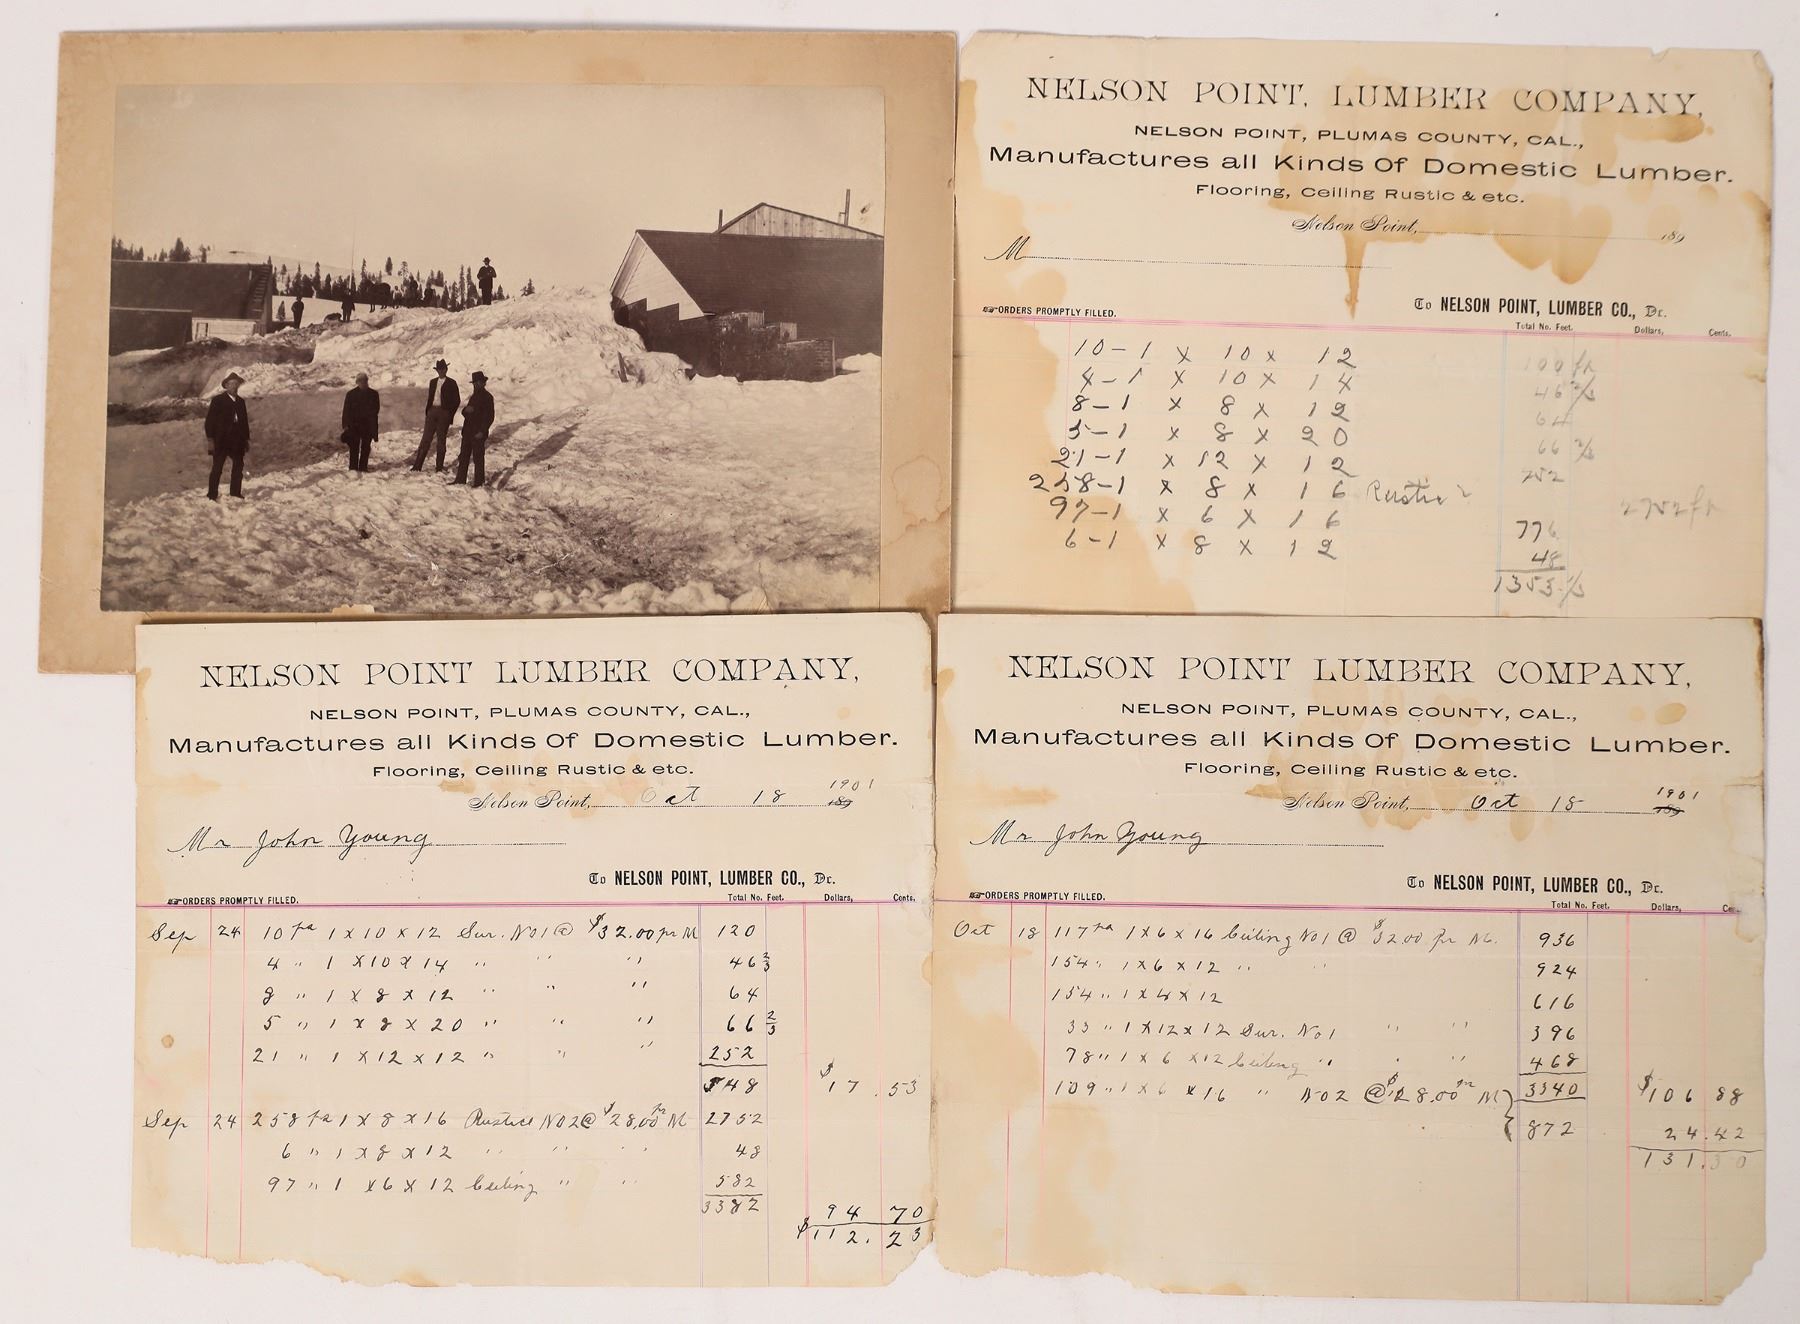 NELSON POINT, LUMBER COMPANY,
NELSON POINT, PLUMAS COUNTY, CAL.,
Manufactures all Kinds Of Domestic Lumber.
Flooring, Ceiling Rustic & etc.
Nelson Point, 189
M
To NELSON POINT, LUMBER CO., Dr.
☞ORDERS PROMPTLY FILLED.
Total No. Feet. Dollars, Cents.
10-1 x 10 x 12 100 ft
4-1 x 10 x 14 46 2/3
8-1 x 8 x 12 64
5-1 x 8 x 20 66 2/3
21-1 x 12 x 12 252
258-1 x 8 x 16 Rustic 2752 ft
97-1 x 6 x 16 776
6-1 x 8 x 12 48
1353 1/3
NELSON POINT LUMBER COMPANY,
NELSON POINT, PLUMAS COUNTY, CAL.,
Manufactures all Kinds Of Domestic Lumber.
Flooring, Ceiling Rustic & etc.
1901
Nelson Point, Oct 18 189
Mr John Young
To NELSON POINT, LUMBER CO., Dr.
☞ORDERS PROMPTLY FILLED.
Total No. Feet. Dollars, Cents.
Sep 24 10 pa 1 x 10 x 12 Sur. No1 @ $32.00 pr M 120
4 " 1 x 10 x 14 " " " 46 2/3
8 " 1 x 8 x 12 " " " 64
5 " 1 x 8 x 20 " " " 66 2/3
21 " 1 x 12 x 12 " " " 252
548 $17.53
Sep 24 258 pa 1 x 8 x 16 Rustice No2 @ $28.00 pr M 2752
6 " 1 x 8 x 12 " " " 48
97 " 1 x 6 x 12 Ceiling " " 582
3382
94 70
$112.23
NELSON POINT LUMBER COMPANY,
NELSON POINT, PLUMAS COUNTY, CAL.,
Manufactures all Kinds Of Domestic Lumber.
Flooring, Ceiling Rustic & etc.
1901
Nelson Point, Oct 18 189
Mr John Young
To NELSON POINT, LUMBER CO., Dr.
☞ORDERS PROMPTLY FILLED.
Total No. Feet. Dollars,
Oct 18 117 pa 1 x 6 x 16 Ceiling No1 @ $32.00 pr M. 936
154 " 1 x 6 x 12 " " 924
154 " 1 x 4 x 12 616
33 " 1 x 12 x 12 Sur. No1 " " 396
78 " 1 x 6 x 12 Ceiling " " " 468
109 " 1 x 6 x 16 " No2 @ $28.00 pr M 3340 $106 88
872 24.42
131.30